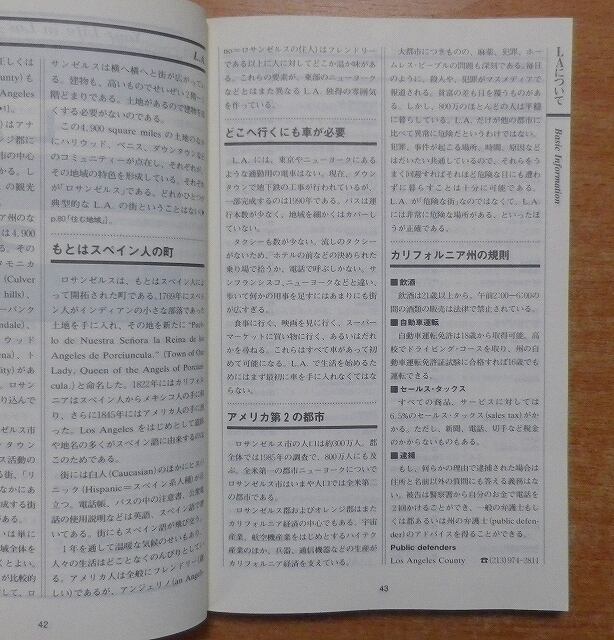 L.A.
正しくは
ounty)も
はアナ
ンジ郡に
市の中心
かる。し
の観光
。
ア州のな
は4,900
る。その
タモニカ
(Culver
hills)、
ーバンク
ndale)、
リウッド
na)、ト
ity)があ
。ロサン
り込んで
ゼルス市
タウン
ス活動の
る街、「リ
なかにあ
成する街
がある。
いは単に
域全体を
くとよい。
が比較的
して、ロ
サンゼルスは横へ横へと街が広がってい
る。建物も、高いものでせいぜい2階~3
階どまりである。土地があるので建物を高
くする必要がないのである。
この4,900 square milesの土地のなか
にハリウッド、ベニス、ダウンタウンなど
のコミュニティーが点在し、それぞれが、
その地域の特色を形成している。それぞれ
が「ロサンゼルス」である。どれかひとつが
典型的なL.A.の街ということはない
p.80「住む地域」)。
もとはスペイン人の町
ロサンゼルスは、もとはスペイン人によ
って開拓された町である。1769年にスペイ
ン人がインディアンの小さな部落であった
土地を手に入れ、その地を新たに“Pueb-
lo de Nuestra Señora la Reina de los
Angeles de Porciuncula.” (Town of Our
Lady, Queen of the Angels of Porciun-
cula.)と命名した。1822年にはカリフォル
ニアはスペイン人からメキシコ人の手に移
り、さらに1845年にはアメリカ人の手に渡
った。Los Angelesをはじめとして道路
や地名の多くがスペイン語に由来するのは
このためである。
街には白人(Caucasian)のほかにヒスパ
ニック(Hispanic=スペイン系人種)が目
立つ。電話帳、バスの中の注意書、公衆電
話の使用説明などは英語、スペイン語で書
いてある。街にもスペイン語が飛び交う。
1年を通して温暖な気候のせいもあり、
人々の生活はどことなくのんびりとしてい
る。アメリカ人は全般にフレンドリー(親
しい)であるが、アンジェリノ(an Angeli-
42
no=ロサンゼルスの住人)はフレンドリー
である以上に人に対してどこか温か味があ
る。これらの要素が、東部のニューヨーク
などとはまた異なるL.A.独得の雰囲気
を作っている。
どこへ行くにも車が必要
L.A.には、東京やニューヨークにある
ような通勤用の電車はない。現在、ダウン
タウンで地下鉄の工事が行われているが、
一部完成するのは1990年である。バスは運
行本数が少なく、地域を細かくはカバーし
ていない。
タクシーも数が少ない。流しのタクシー
がないため、ホテルの前などの決められた
乗り場で拾うか、電話で呼ぶしかない。サ
ンフランシスコ、ニューヨークなどと違い、
歩いて何かの用事を足すにはあまりにも街
が広すぎる。
食事に行く、映画を見に行く、スーパー
マーケットに買い物に行く、あるいはだれ
かを尋ねる。これらはすべて車があって初
めて可能になる。L.A.で生活を始めるた
めにはまず最初に車を手に入れなくてはな
らない。
アメリカ第2の都市
ロサンゼルス市の人口は約300万人、郡
全体では1985年の調査で、800万人にも及
ぶ。全米第一の都市ニューヨークについで
ロサンゼルス市はいまや人口では全米第二
の都市である。
ロサンゼルス郡およびオレンジ郡はまた
カリフォルニア経済の中心でもある。宇宙
産業、航空機産業をはじめとするハイテク
産業のほか、兵器、通信機器などの生産が
カリフォルニア経済を支えている。
大都市につきものの、麻薬、犯罪、ホー
ムレス・ピープルの問題も深刻である。毎日
のように、殺人や、犯罪がマスメディアで
報道される。貧富の差も目を覆うものがあ
る。しかし、800万のほとんどの人は平穏
に暮らしている。L.A.だけが他の都市に
比べて異常に危険だというわけではない。
犯罪、事件が起こる場所、時間、原因など
はだいたい共通しているので、それらをう
まく回避すればそれほど危険な目にも遭わ
ずに暮らすことは十分に可能である。
L.A.が危険な街」なのではなくて、L.A.
には非常に危険な場所がある、といったほ
うが正確である。
カリフォルニア州の規則
■飲酒
飲酒は21歳以上から。午前2:00~6:00の
間の酒類の販売は法律で禁止されている。
■自動車運転
自動車運転免許は18歳から取得可能。高
校でドライビング・コースを取り、州の自
動車運転免許証試験に合格すれば16歳でも
運転できる。
■セールス・タックス
すべての商品、サービスに対しては
6.5%のセールス・タックス(sales tax)がか
かる。ただし、新聞、電話、切手など税金
のかからないものもある。
■逮捕
もし、何らかの理由で逮捕された場合は
住所と名前以外の質問にも答える義務はな
い。被告は警察署から自分のお金で電話を
2回かけることができ、一般の弁護士もし
くは郡あるいは州の弁護士(public defen-
der)のアドバイスを得ることができる。
Public defenders
Los Angeles County ☎(213)974-2811
43
L.A.について
Basic Information